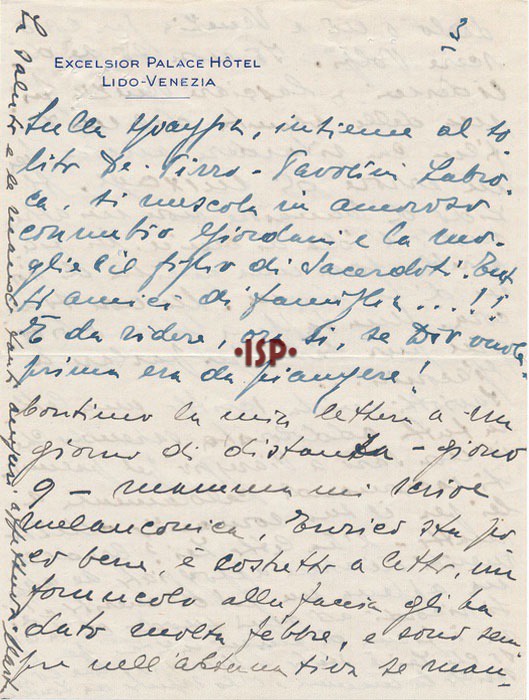 3
EXCELSIOR PALACE HÔTEL
LIDO-VENEZIA
Sulla spiaggia, insieme al so-
lito De-Pirro-Pavolini Labro-
ca, si mescola in amoroso
connubio Giordani e la mo-
glie e il figlio di Sacerdoti. Tut
ti amici di famiglia...!!
È da ridere, ora sì, se Dio vuole
prima era da piangere!
•ISP•
Continuo la mia lettera a un
giorno di distanza - giorno
9 - mamma mi scrive
melanconica, Enrico sta po
co bene, è costretto a letto, un
foruncolo alla faccia gli ha
dato molta febbre, e sono sem
pre nell'alternativa se man-
La saluto e le mando tanti auguri affettuosi. Mart